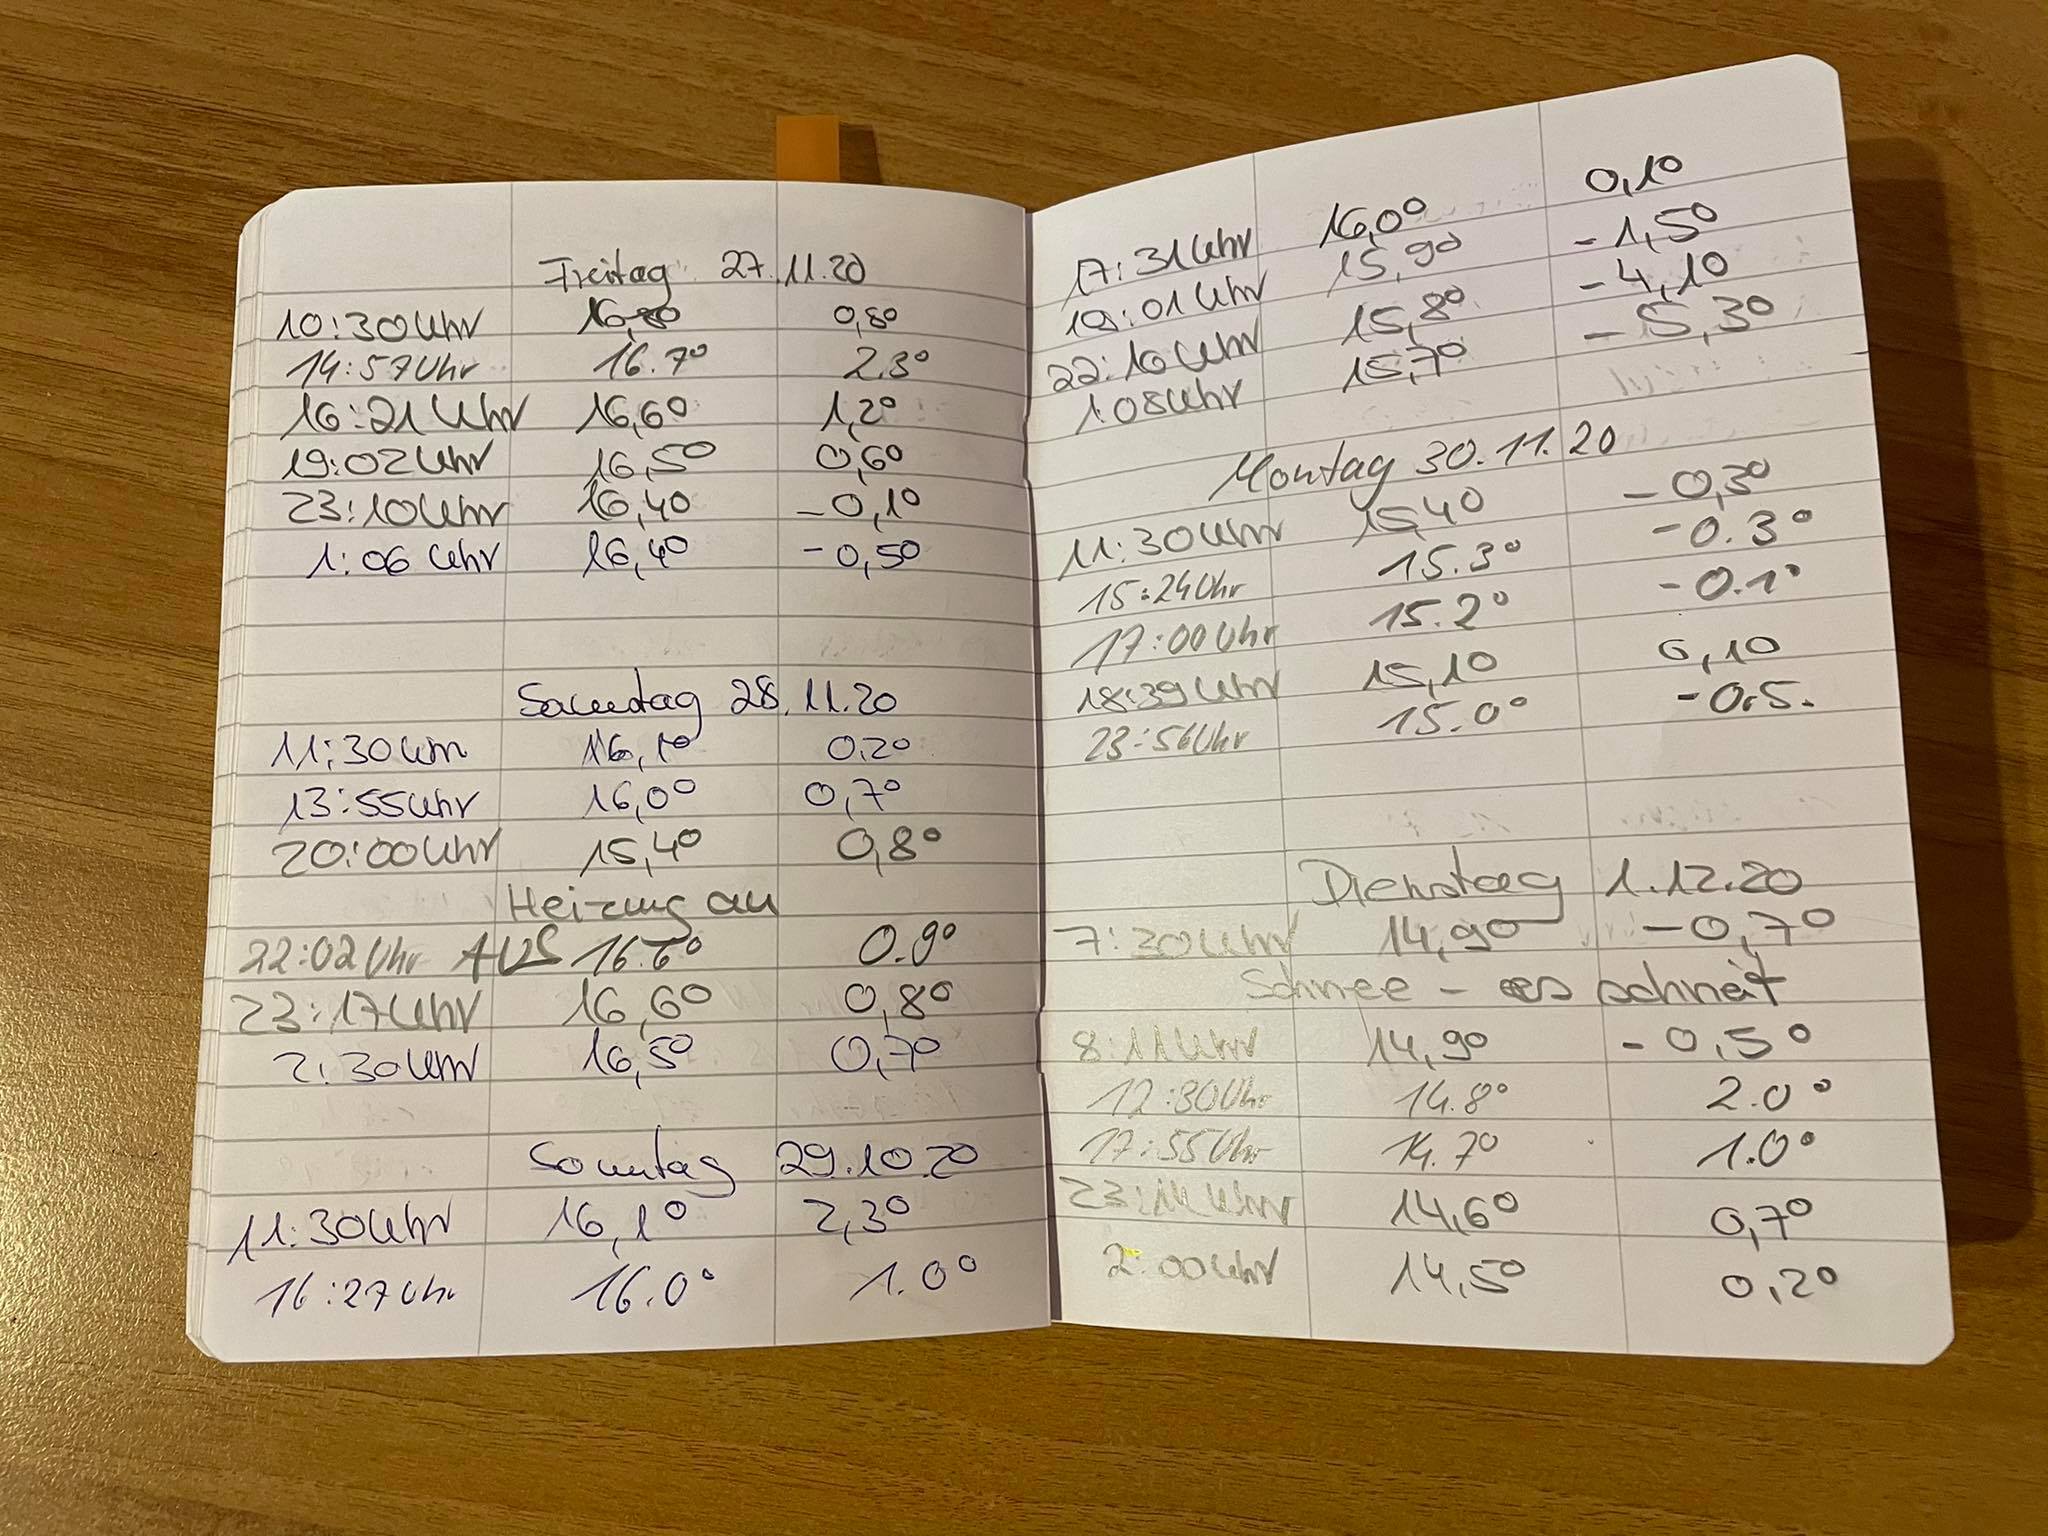 Freitag 27.11.20
10:30 Uhr 16,8° 0,8°
14:57 Uhr 16.7° 2.3°
16:21 Uhr 16,6° 1,2°
19:02 Uhr 16,5° 0,6°
23:10 Uhr 16,4° -0,1°
1:06 Uhr 16,4° -0,5°
Samstag 28.11.20
11:30 Uhr 16,1° 0,2°
13:55 Uhr 16,0° 0,7°
20:00 Uhr 15,4° 0,8°
Heizung an
22:02 Uhr AUS 16.6° 0.9°
23:17 Uhr 16,6° 0,8°
2:30 Uhr 16,5° 0,7°
Sonntag 29.10.20
11:30 Uhr 16,1° 2,3°
16:27 Uhr 16.0° 1.0°
17:31 Uhr 16,0° 0,1°
19:01 Uhr 15,9° -1,5°
22:10 Uhr 15,8° -4,1°
1:08 Uhr 15,7° -5,3°
Montag 30.11.20
11:30 Uhr 15,4° -0,3°
15:24 Uhr 15.3° -0.3°
17:00 Uhr 15.2° -0.1°
18:39 Uhr 15,1° 0,1°
23:56 Uhr 15.0° -0.5.
Dienstag 1.12.20
7:30 Uhr 14,9° -0,7°
Schnee - es schneit
8:11 Uhr 14,9° -0,5°
12:30 Uhr 14.8° 2.0°
17:55 Uhr 14.7° 1.0°
23:14 Uhr 14,6° 0,7°
2:00 Uhr 14,5° 0,2°